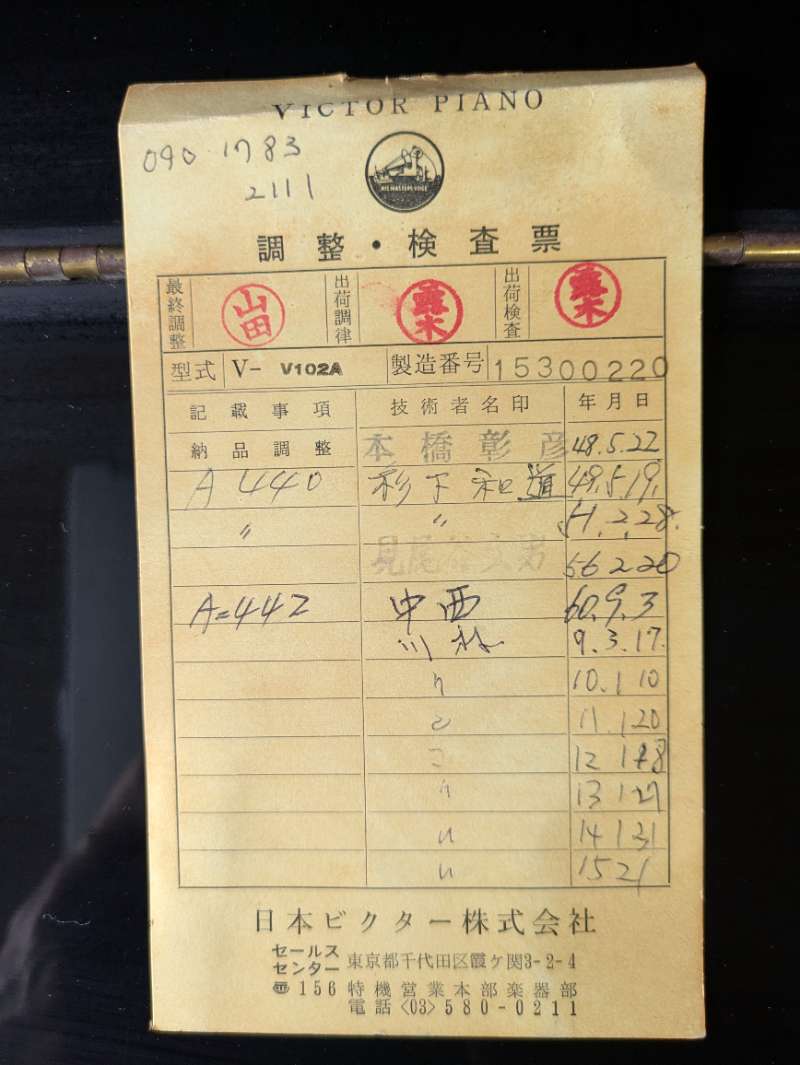 VICTOR PIANO
090 1783
2111
HIS MASTERS VOICE
調整・検査票
最終調整 山田 出荷調律 出荷検査
型式 V- V102A 製造番号 15300220
記載事項 技術者名印 年月日
納品調整 本橋彰彦 48.5.22
A 440 杉下和道 49.5.19.
〃 〃 51.2.28.
56 2 20
A=442 中西 60.9.3
9.3.17.
10.1 10
11.120
12 1
13 127
14 131
15 21
日本ビクター株式会社
セールスセンター 東京都千代田区霞ケ関3-2-4
〠156 特機営業本部楽器部
電話<03>580-0211